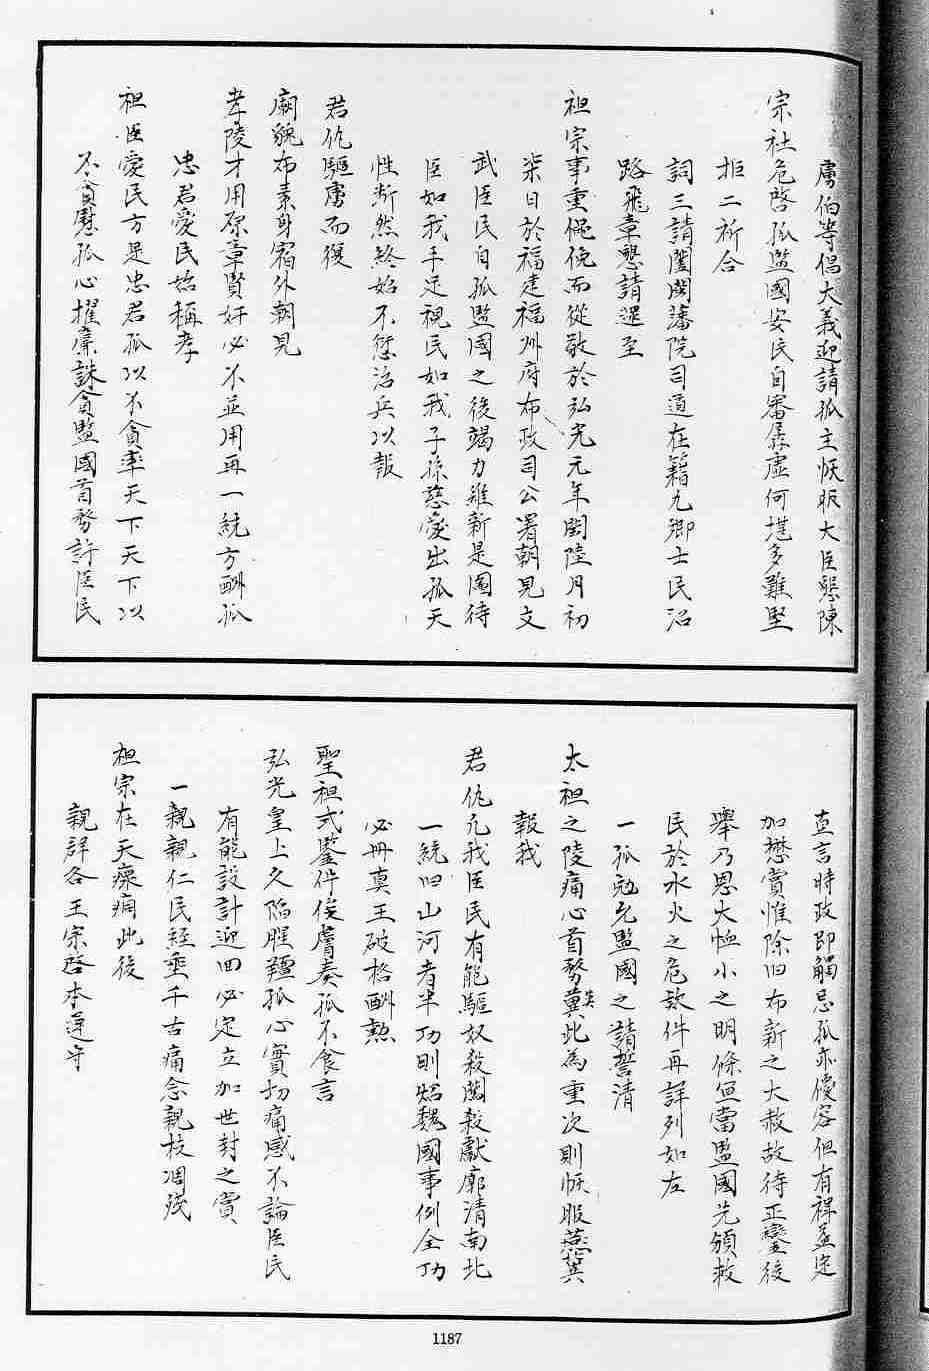 虜伯等倡大義迎請孤主恢昄大臣懇陳
宗社危啓孤監國安民自審孱虛何堪多難堅
拒二祈合
詞三請闔閩藩院司道在籍九卿士民沿
路飛章懇請選至
祖宗事重俛俛而從敬於弘光元年閏陸月初
柒日於福建福州府布政司公署朝見文
武臣民自孤監國之後竭力維新是圖待
臣如我手足視民如我子孫慈愛出孤天
性斷然終始不愆治兵以報
君仇驅虜而復
廟貌布素身宿外朝見
孝陵才用原章賢奸必不並用再一統方酬孤
忠君愛民始稱孝
祖臣愛民方是忠君孤以不貪率天下天下以
不貪慰孤心擢廉誅貪監國首務許臣民
直言時政即觸忌孤亦優容但有禆益定
加懋賞惟除旧布新之大赦故待正鑾後
舉乃恩大恤小之明條亟當監國先頒救
民於水火之危欵件再詳列如左
一孤勉允監國之請誓清
太祖之陵痛心首務冀此為重次則恢服燕冀
報我
君仇凡我臣民有能驅奴殺闖殺獻廓清南北
一統旧山河者半功則炤魏國事例全功
必冊真王破格酬勲
聖祖式鑒件俟膚奏孤不食言
弘光皇上久陷腥羶孤心實切痛感不論臣民
有能設計迎回必定立加世封之賞
一親親仁民經垂千古痛念親枝凋殘
祖宗在天瘝痌此後
親詳各王宗啓本運守
1187